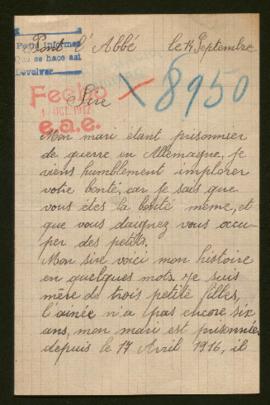 Pont l'Abbé le 14 Septembre
Para informar
que se hace así
Devolver
Fecho
OCT. 1917
e.a.e.
X 8950
Sire
Mon mari etant prisonnier
de guerre en Allemagne, je
viens humblement implorer
votre bonté, car je sais que
vous êtes la bonté même, et
que vous daignez vous occu-
per des petits.
Mon sire voici mon histoire
en quelques mots. Je suis
mère de trois petite filles,
l'ainée n'a pas encore six
ans, mon mari est prisonnier
depuis le 17 Avril 1916, il